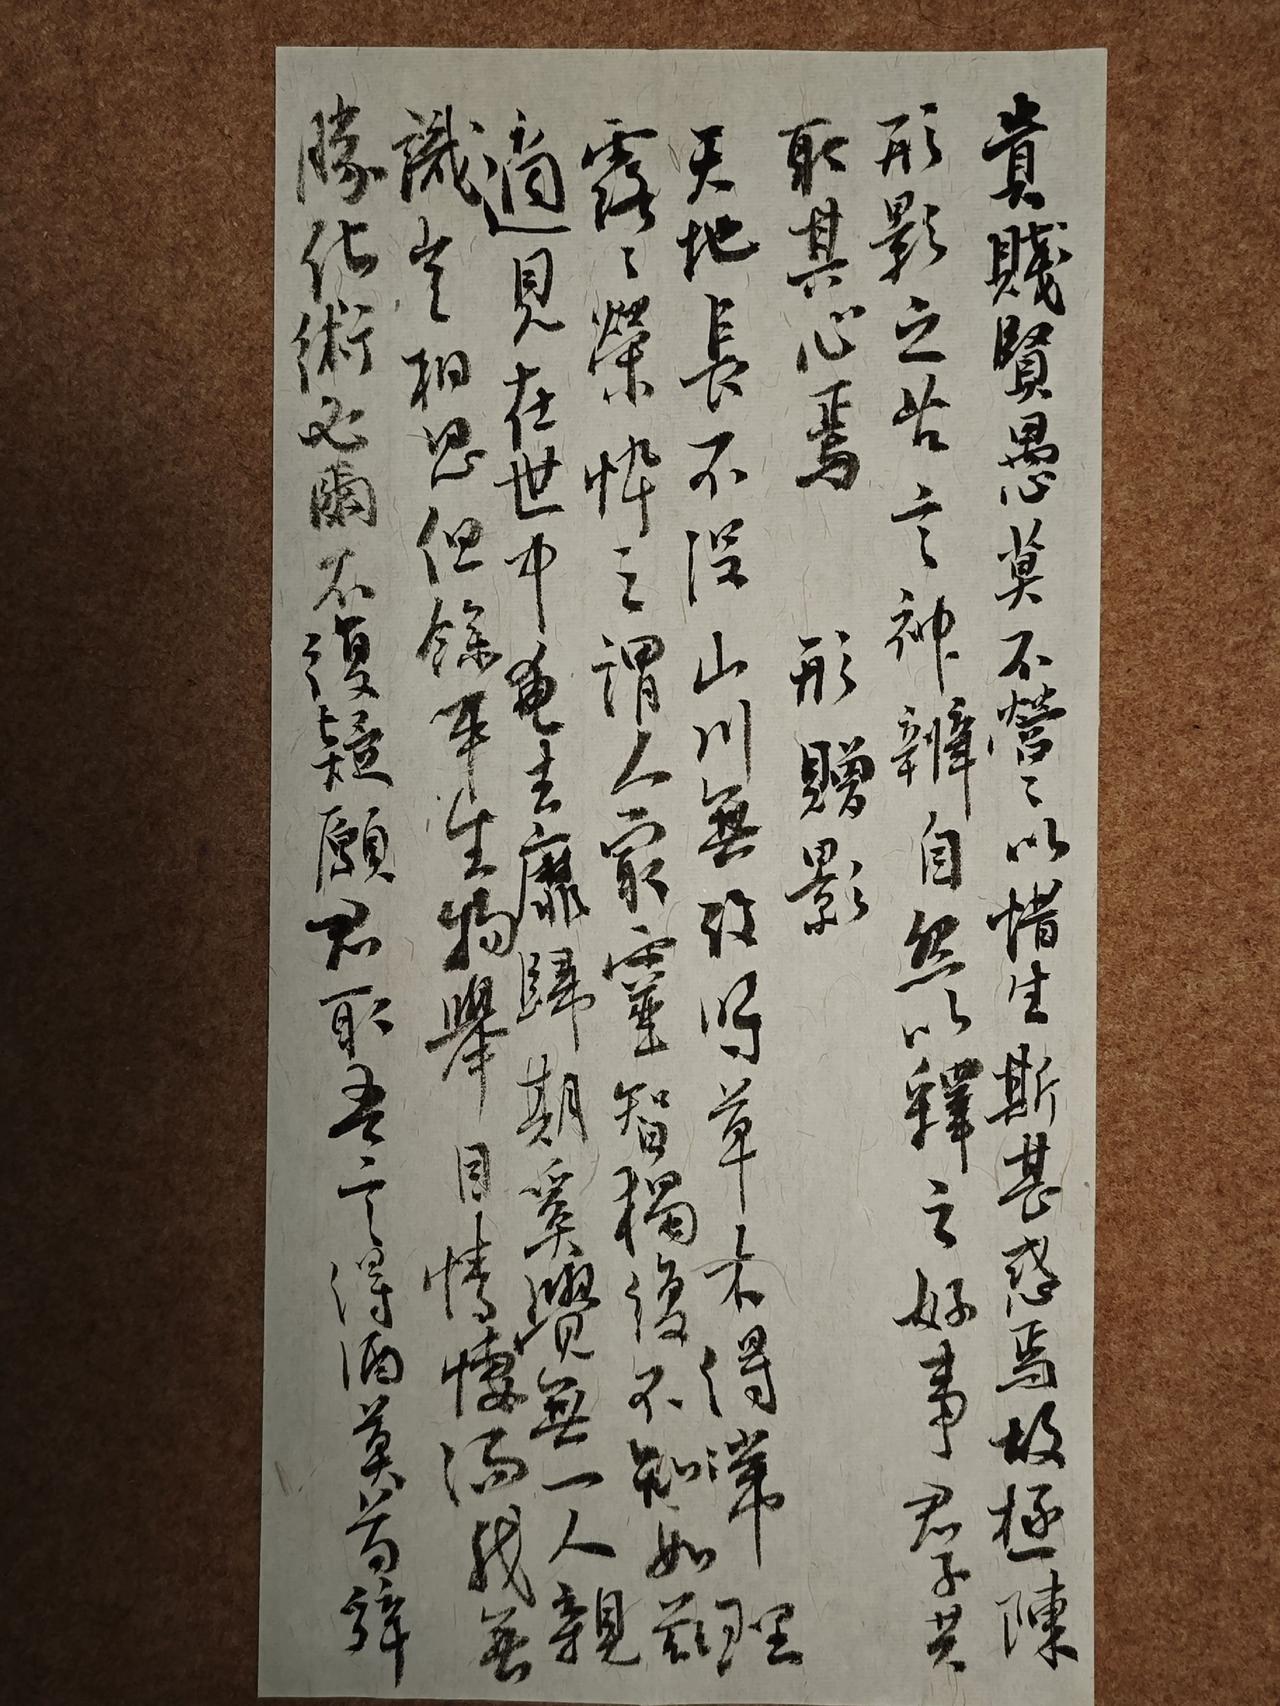 貴賤賢愚莫不營〻以惜生斯甚惑焉故極陳
形影之苦言神辨自然以釋之好事君子共
取其心焉 形贈影
天地長不没山川無改時草木得常理
霜露〻榮悴之謂人最靈智獨復不知如茲
適見在世中奄去靡歸期奚覺無一人親
識豈相思但餘平生物舉目情悽洏我無
騰化術必爾不復疑願君取吾言得酒莫苟辭